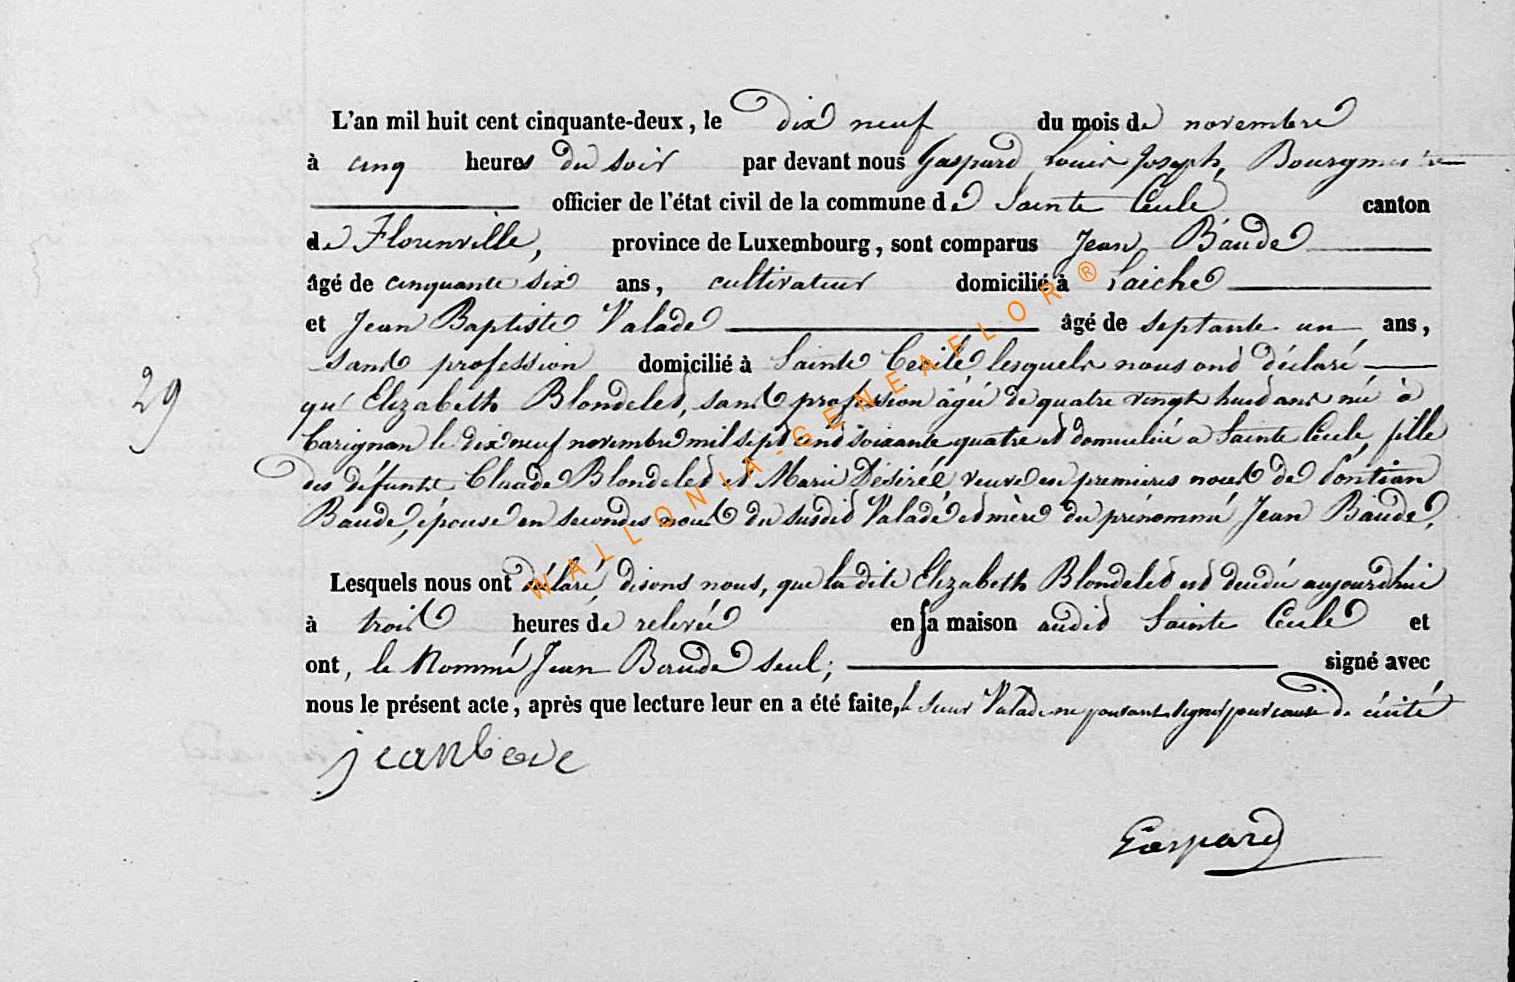 L'an mil huit cent cinquante-deux, le dix neuf du mois de novembre
à cinq heures du soir par devant nous Gaspard, Louis Joseph, Bourgmestre
officier de l'état civil de la commune de Sainte Cecile canton
de Florenville, province de Luxembourg, sont comparus Jean Baude
âgé de cinquante six ans, cultivateur domicilié à Laiche
et Jean Baptiste Valade âgé de septante un ans,
sans profession domicilié à Sainte Cecile lesquels nous ont déclaré
qu' Elizabeth Blondeled, sans profession âgée de quatre vingt huit ans né à
Carignan le dix neuf novembre mil sept cent soixante quatre et domiciliée a Sainte Cecile, fille
des défunts Claude Blondeled et Marie Désirée veuve en premieres noces de Pontian
Baude, épouse en secondes noces du susdit Valade et mère du prénommé Jean Baude.
Lesquels nous ont déclaré, disons nous, que la dite Elizabeth Blondeled est decedée aujourdhui
à trois heures de relevée en sa maison audit Sainte Cecile et
ont, le Nommé Jean Baude seul; signé avec
nous le présent acte, après que lecture leur en a été faite, le sieur Valade ne pouvant signer pour cause de cécité
29
jean
Gaspard
WALLONIA-GENEAFLOR®